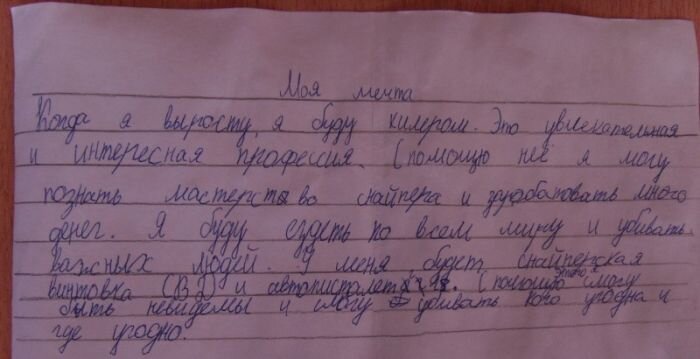 Моя мечта
Когда я выросту, я буду килером. Это увлекательная
и интересная профессия. С помощю неё я могу
познать мастерство снайпера и зарабатовать много
денег. Я буду ездеть по всем миру и убивать
важных людей. У меня будет снайперская
винтовка и автопистолет С помощю этого я смогу
быть невидемы и смогу убивать кого угодна и
где угодно.